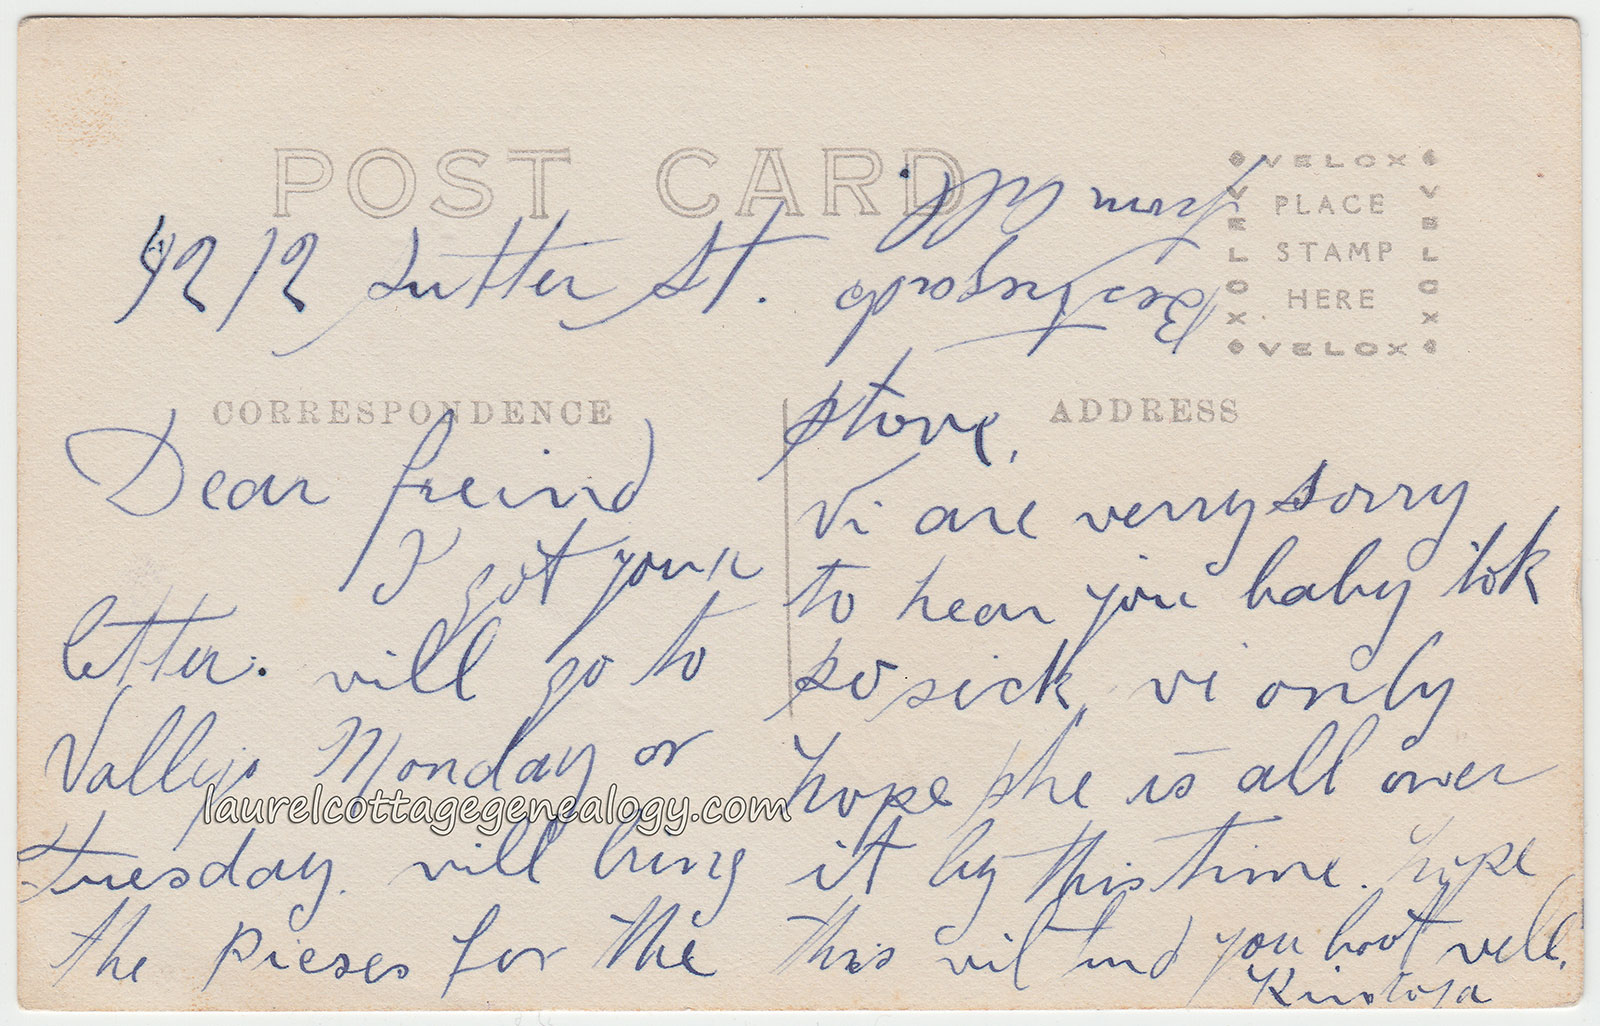 POST CARD
VELOX
VELOX
VELOX
VELOX
PLACE
STAMP
HERE
1212 Sutter St.
CORRESPONDENCE
ADDRESS
Dear freind
I got your
letter. vill go to
Vallejo Monday or
tuesday. vill bring
the pieses for the
stove.
Vi are verry sorry
to hear you baby tok
so sick, vi only
hope she is all over
it by this time. hope
this vil find you boot vell.
Best regards
from all.
laurelcottagegenealogy.com